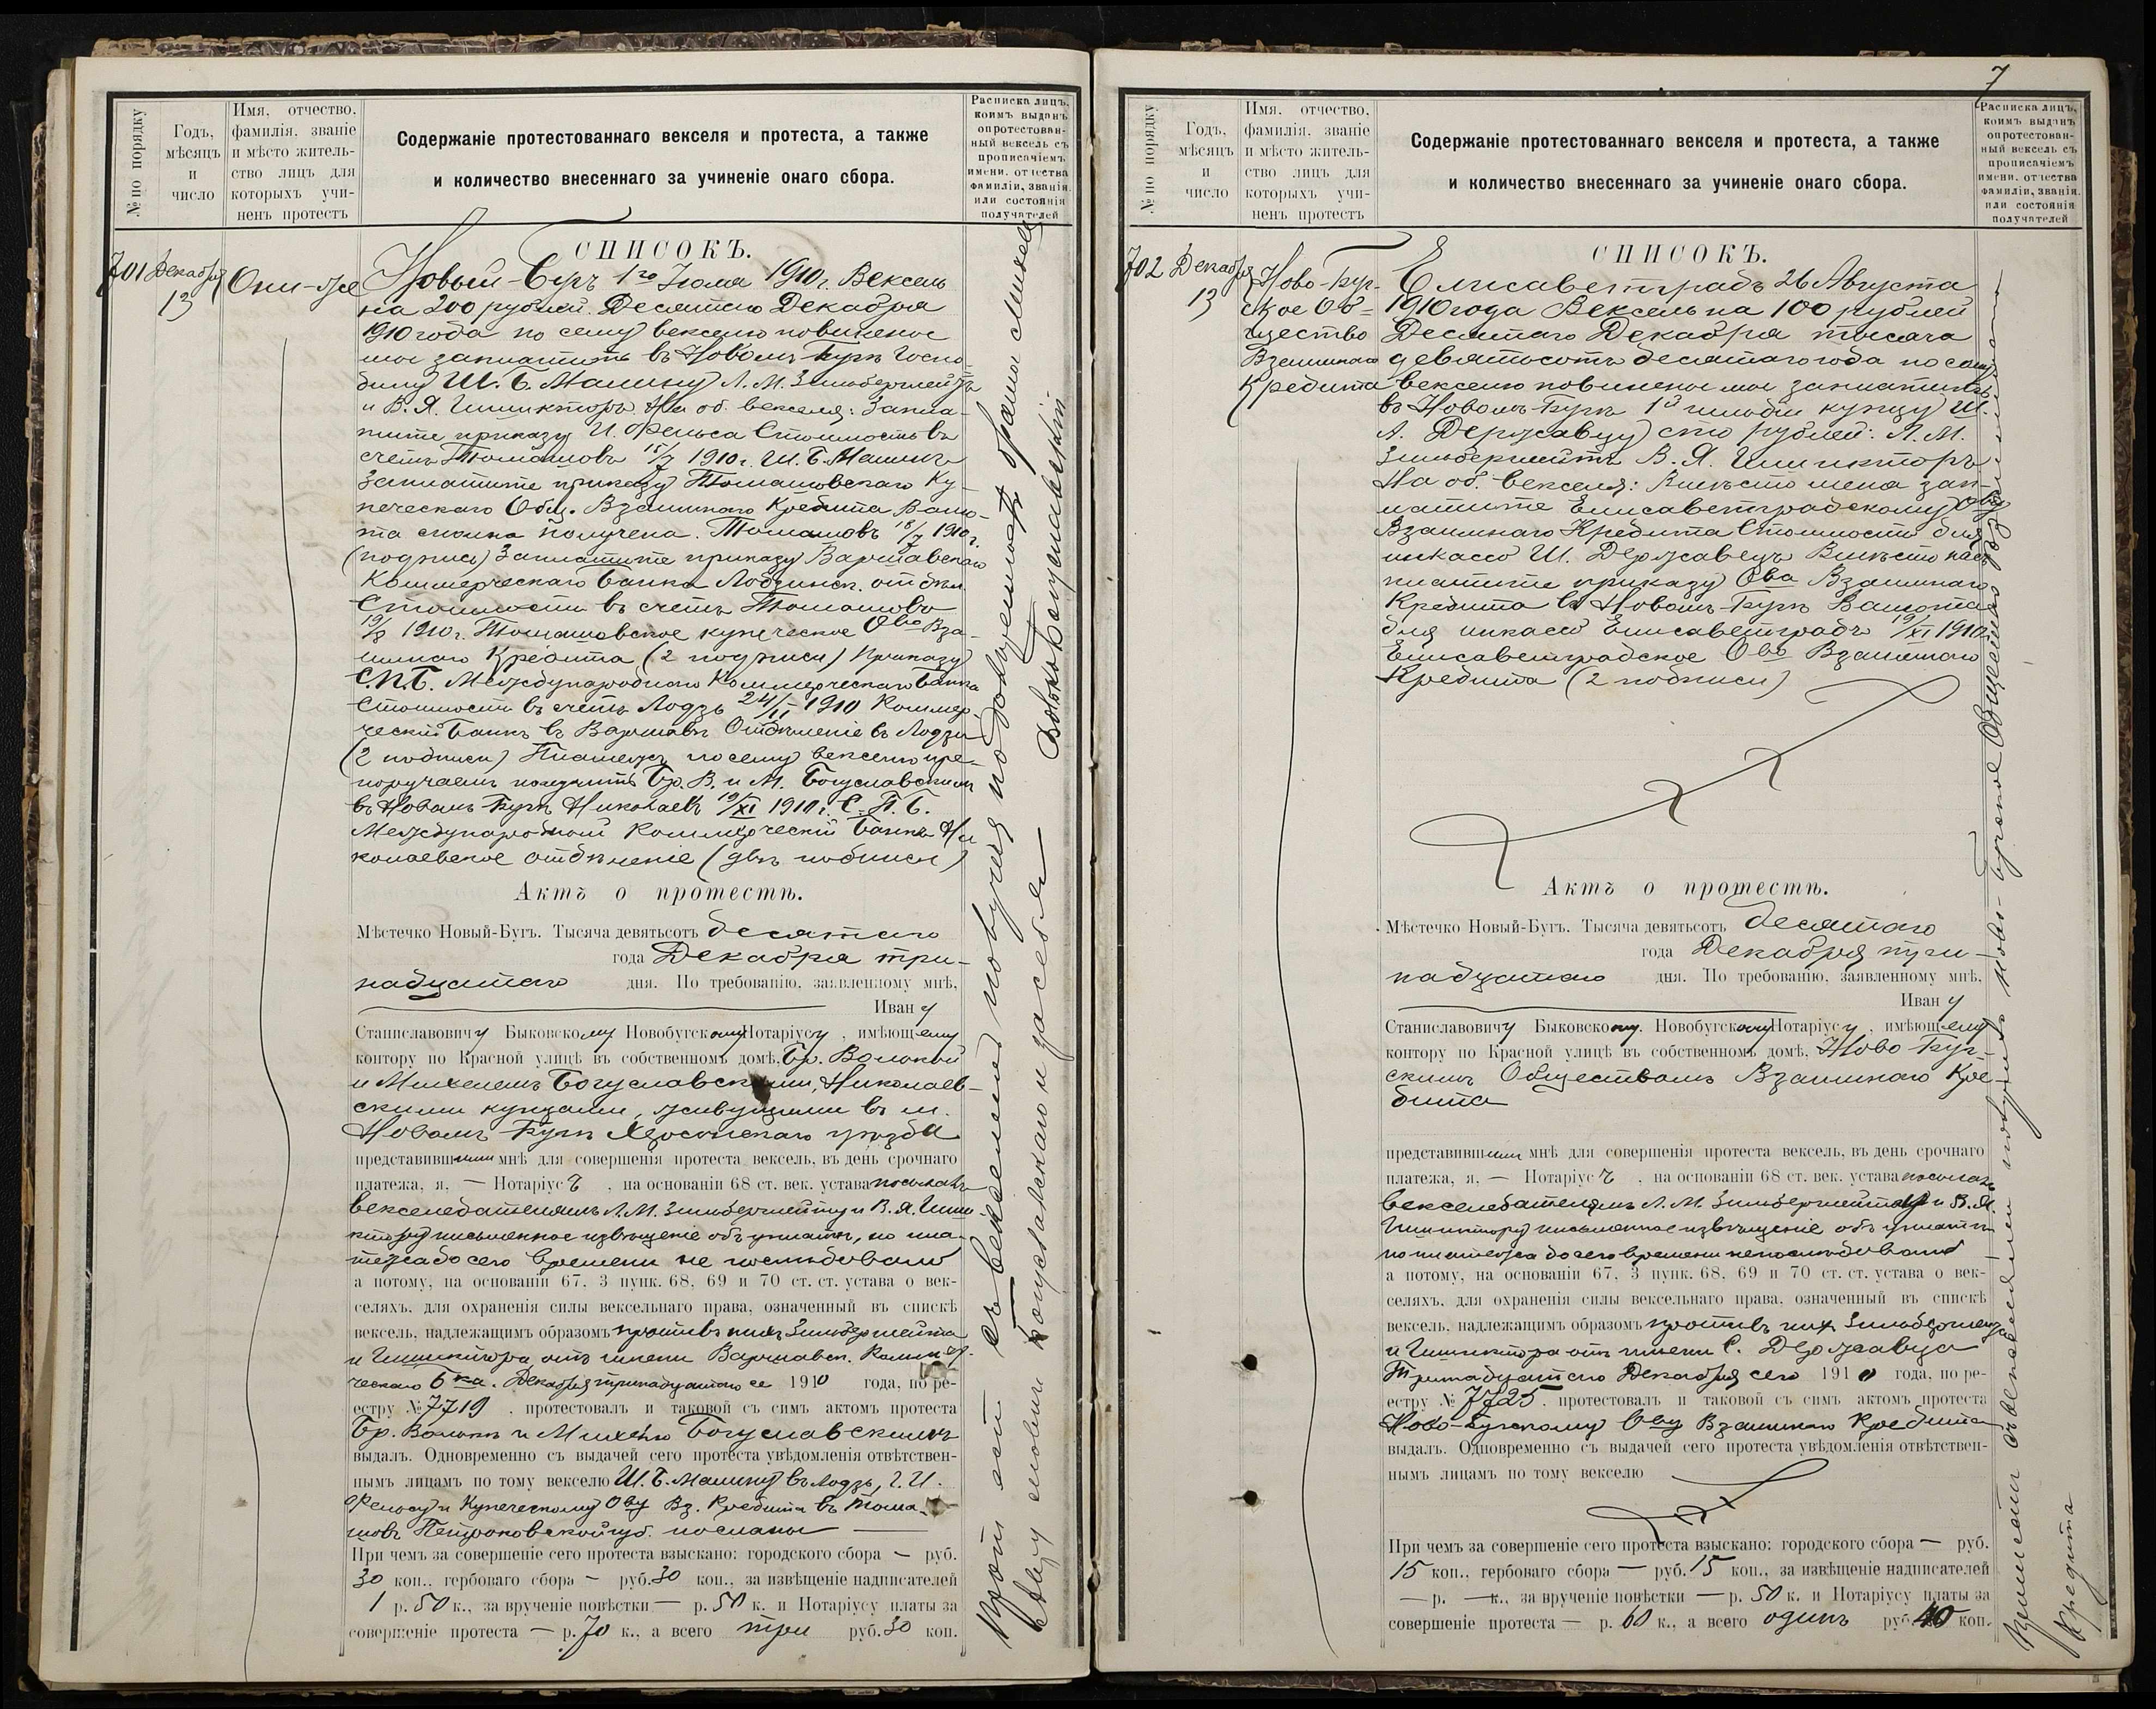 № по порядку
Годъ,
мѣсяцъ
и
число
Имя, отчество,
фамилія, званіе
и мѣсто житель-
ство лицъ для
которыхъ учи-
ненъ протестъ
Содержаніе протестованнаго векселя и протеста, а также
и количество внесеннаго за учиненіе онаго сбора.
Расписка лицъ,
коимъ выданъ
опротестован-
ный вексель съ
прописаніемъ
имени, отчества
фамиліи, званія
или состоянія
получателей
СПИСОКЪ.
701 Декабря
13
Они-же
Новый-Бугъ 1го Іюля 1910 г. Вексель
на 200 рублей. Десятаго Декабря
1910 года по сему векселю повинены
мы заплатить въ Новомъ Бугѣ Госпо
дину Ш. Б. Малину Л. М. Зильбершмейтъ
и В. Я. Шпикторъ. На об. векселя: Запла-
тите приказу И. Фельса Стоимость въ
счетъ Томашовъ 15/7 1910 г. Ш. Б. Малинъ
Заплатите приказу Томашовскаго Ку-
печескаго Общ. Взаимнаго Кредита Валю-
та сполна получена. Томашовъ 18/7 1910 г.
(подпись) Заплатите приказу Варшавскаго
Коммерческаго Банка Лодзинск. отдѣл.
Стоимости въ счетъ Томашовъ
19/8 1910 г. Томашовское купеческое Ово Вза-
имнаго Кредита (2 подписи) Приказу
С.П.Б. Международнаго Коммерческаго Банка
Стоимость въ счетъ Лодзь 24/11 1910 Коммер
ческій Банкъ въ Варшавѣ Отдѣленіе въ Лодзи
(2 подписи) Платежъ по сему векселю пре-
поручаемъ получить Бр. В. и М. Богуславскимъ
въ Новомъ-Бугѣ Николаевъ 19/XI 1910 г. С. П. Б.
Международный Коммерческій Банкъ Ни
колаевское отдѣленіе (двѣ подписи)
Актъ о протестѣ.
Мѣстечко Новый-Бугъ. Тысяча девятьсотъ десятаго
года Декабря три-
надцатаго дня. По требованію, заявленному мнѣ,
Ивану
Станиславовичу Быковскому Новобугскому Нотаріусу, имѣющему
контору по Красной улицѣ въ собственномъ домѣ, Бр. Волькой
и Михелемъ Богуславскими, Николаев-
скими купцами, живущими въ м.
Новомъ Бугѣ Херсонскаго уѣзда
представившими мнѣ для совершенія протеста вексель, въ день срочнаго
платежа, я, — Нотаріусъ, на основаніи 68 ст. век. устава посылалъ
векселедателямъ Л. М. Зильбершмейту и В. Я. Шпи-
ктору письменное извѣщеніе объ уплатѣ, но пла-
тежа до сего времени не послѣдовало
а потому, на основаніи 67, 3 пунк. 68, 69 и 70 ст. ст. устава о век-
селяхъ, для охраненія силы вексельнаго права, означенный въ спискѣ
вексель, надлежащимъ образомъ противъ нихъ Зильбершмейта
и Шпиктора, отъ имени Варшавск. Коммер-
ческаго Бка. Декабря тринадцатаго се 1910 года, по ре-
естру № 7719, протестовалъ и таковой съ симъ актомъ протеста
Бр. Волькѣ и Михелю Богуславскимъ
выдалъ. Одновременно съ выдачей сего протеста увѣдомленія отвѣтствен-
нымъ лицамъ по тому векселю Ш. Б. Малину въ Лодзь, Г. И.
Фельсу и Купеческому Ову Вз. Кредита въ Тома-
шовъ Петроковской губ. посланы
При чемъ за совершеніе сего протеста взыскано: городского сбора — руб.
30 коп., гербоваго сбора — руб. 30 коп., за извѣщеніе надписателей
1 р. 50 к., за врученіе повѣстки — р. 50 к. и Нотаріусу платы за
совершеніе протеста — р. 70 к., а всего три руб. 30 коп.
съ векселемъ получилъ по довѣренности брата Михеля
Богуславскаго и за себя Волько Богуславскій
7
№ по порядку
Годъ,
мѣсяцъ
и
число
Имя, отчество,
фамилія, званіе
и мѣсто житель-
ство лицъ для
которыхъ учи-
ненъ протестъ
Содержаніе протестованнаго векселя и протеста, а также
и количество внесеннаго за учиненіе онаго сбора.
Расписка лицъ,
коимъ выданъ
опротестован-
ный вексель съ
прописаніемъ
имени, отчества
фамиліи, званія,
или состоянія
получателей
СПИСОКЪ.
702 Декабря
13
Ново-Буг-
ское Об-
щество
Взаимнаго
Кредита
Елисаветградъ 26 Августа
1910 года Вексель на 100 рублей
Десятаго Декабря тысяча
девятьсотъ десятаго года по сему
векселю повинены мы заплатить
въ Новомъ Бугѣ 1й гильдіи купцу Ш.
А. Державцу сто рублей: Л. М.
Зильбершмейтъ В. Я. Шпикторъ
На об. векселя: Вмѣсто меня зап-
латите Елисаветградскому Ову
Взаимнаго Кредита Стоимость для
инкассо Ш. Державецъ Вмѣсто насъ
платите приказу Ова Взаимнаго
Кредита въ Новомъ-Бугѣ Валюта
для инкассо Елисаветградъ 19/XI 1910 г.
Елисаветградское Ово Взаимнаго
Кредита (2 подписи)
Актъ о протестѣ.
Мѣстечко Новый-Бугъ. Тысяча девятьсотъ десятаго
года Декабря три-
надцатаго дня. По требованію, заявленному мнѣ,
Ивану
Станиславовичу Быковскому. Новобугскому Нотаріусу, имѣющему
контору по Красной улицѣ въ собственномъ домѣ, Ново Буг-
скимъ Обществомъ Взаимнаго Кре-
дита
представившимъ мнѣ для совершенія протеста вексель, въ день срочнаго
платежа, я, — Нотаріусъ, на основаніи 68 ст. век. устава посылалъ
векселедателямъ Л. М. Зильбершмейту и В. Я.
Шпиктору письменное извѣщеніе объ уплатѣ
но платежа до сего времени не послѣдовало
а потому, на основаніи 67, 3 пунк. 68, 69 и 70 ст. ст. устава о век-
селяхъ, для охраненія силы вексельнаго права, означенный въ спискѣ
вексель, надлежащимъ образомъ противъ нихъ Зильбершмейта
и Шпиктора отъ имени С. Державца
Тринадцатаго Декабря сего 1910 года, по ре-
естру № 7725. протестовалъ и таковой съ симъ актомъ протеста
Ново-Бугскому Ову Взаимнаго Кредита
выдалъ. Одновременно съ выдачей сего протеста увѣдомленія отвѣтствен-
нымъ лицамъ по тому векселю
При чемъ за совершеніе сего протеста взыскано: городского сбора — руб.
15 коп., гербоваго сбора — руб. 15 коп., за извѣщеніе надписателей
— р. — к., за врученіе повѣстки — р. 50 к. и Нотаріусу платы за
совершеніе протеста — р. 60 к., а всего одинъ руб. 40 коп.
съ векселемъ получилъ Ново-Бугское Общество Взаимнаго
Кредита